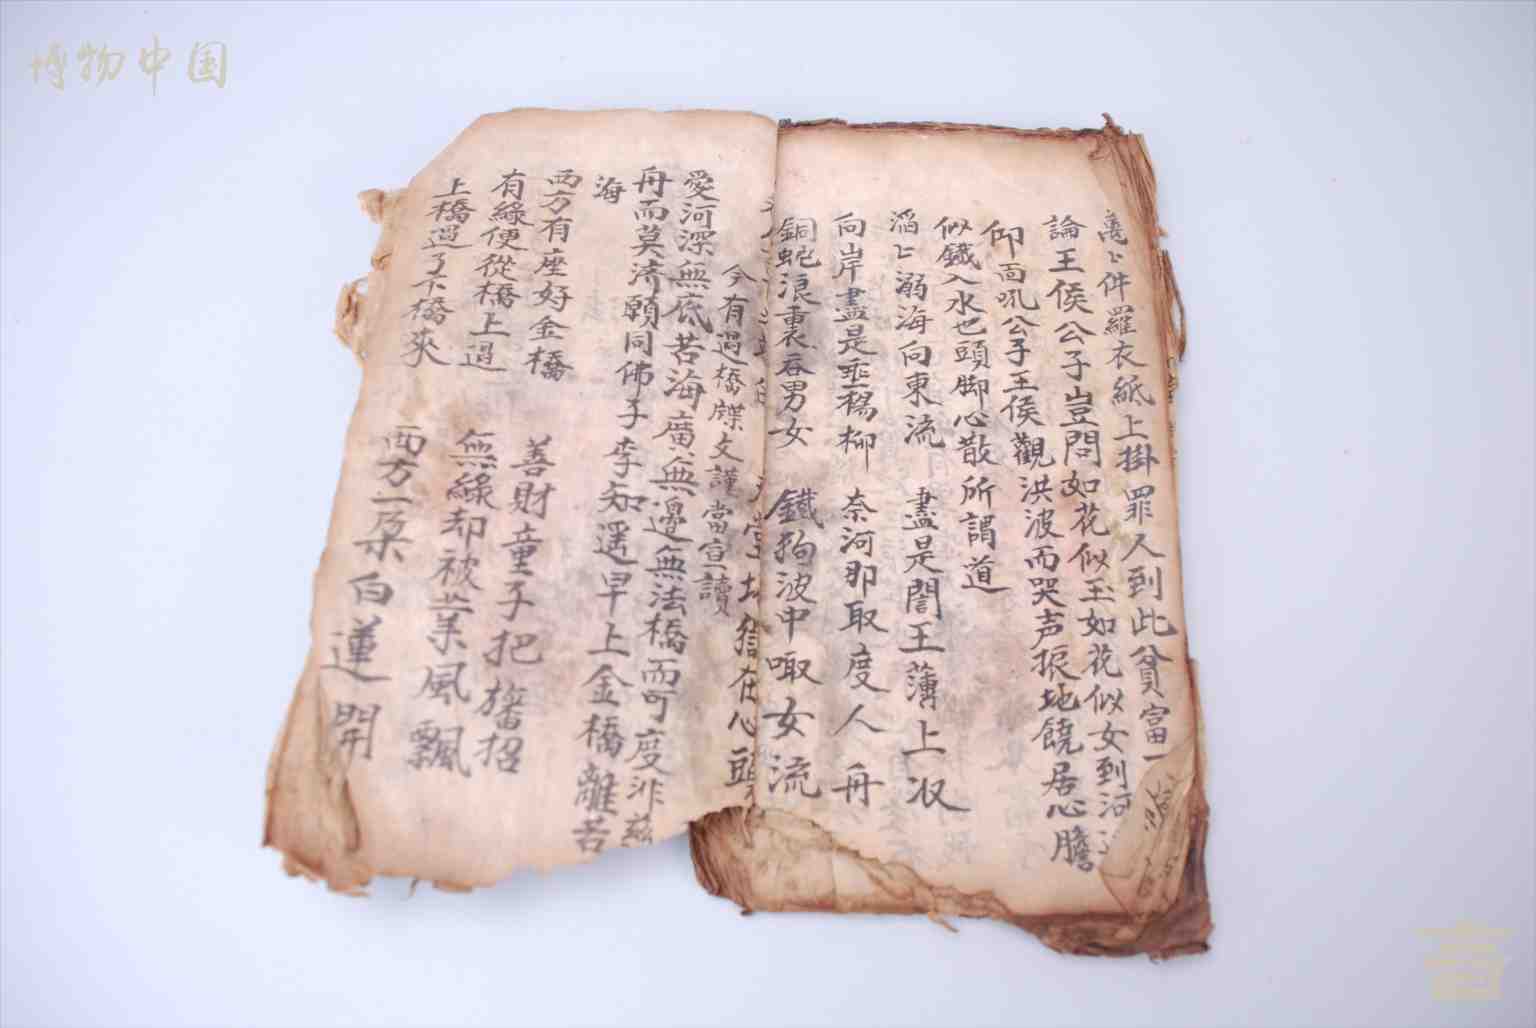 博物中国
萬〻件羅衣紙上掛罪人到此貧富一
論王侯公子豈問如花似玉如花似女到河
仰面吼公子王侯觀洪波而哭声振地饒居心膽
似鐵入水也頭脚心散所謂道
滔〻溺海向東流 盡是閻王薄上收
向岸盡是垂楊柳 奈河那取度人舟
銅蛇浪裏吞男女 鐵狗波中啣女流
在心頭
今有過橋牒文謹當宣讀
愛河深無底苦海廣無邊無法橋而可度非慈
舟而莫济願同佛子李知遥早上金橋離苦
海
西方有座好金橋 善財童子把旛招
有綠便從橋上過 無綠却被業風飄
上橋過了下橋來 西方一朵白蓮開